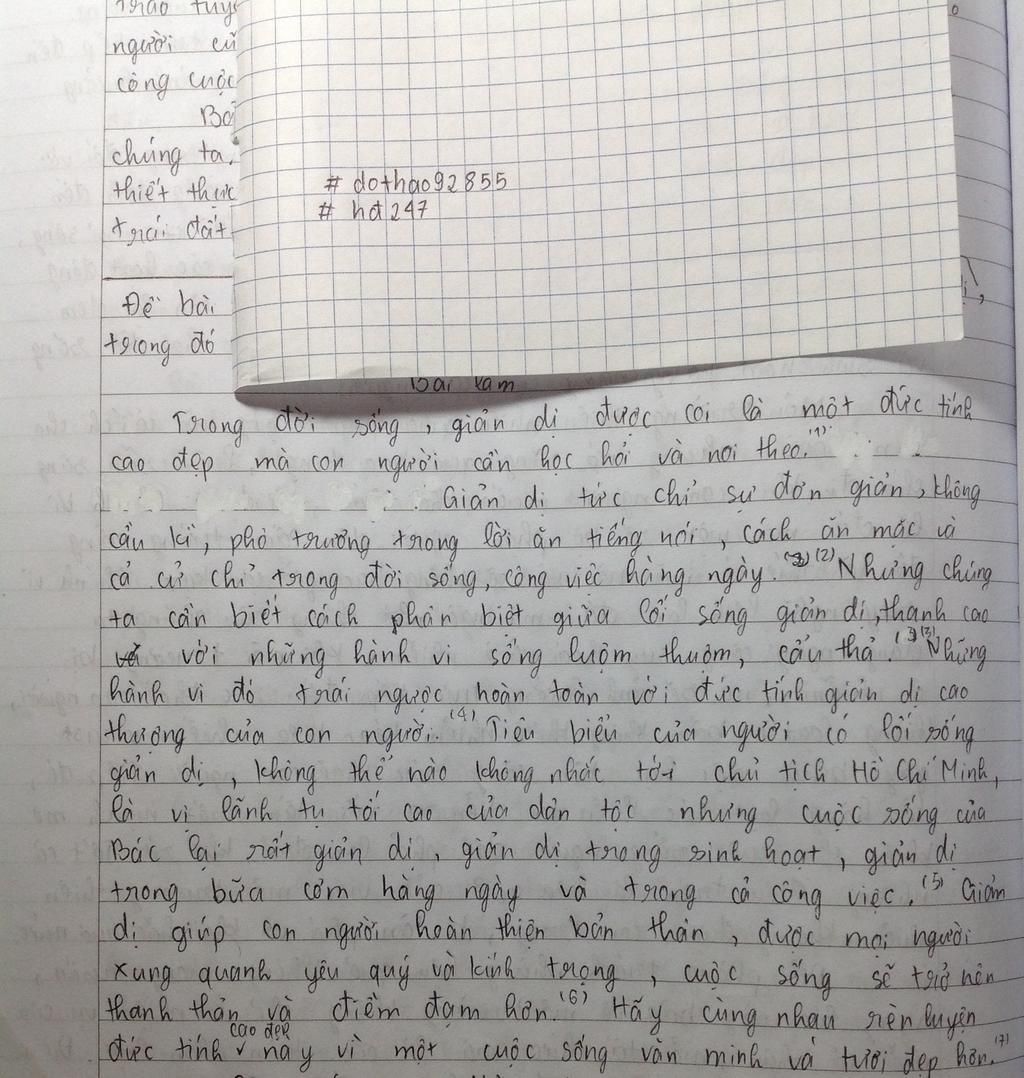 trao tuy
người cũ
công cuộc
chúng ta,
thiết thực
trái đất
# dothao92855
# hđ247
Đề bài
trong đó
Bài làm
Trong đời sống, giản dị được coi là một đức tính
cao đẹp mà con người cần học hỏi và noi theo.(1)
Giản dị tức chỉ sự đơn giản, không
cầu kì, phô trương trong lời ăn tiếng nói, cách ăn mặc và
cả cử chỉ trong đời sống, công việc hàng ngày. (2) Nhưng chúng
ta cần biết cách phân biệt giữa lối sống giản dị, thanh cao
với những hành vi sống luộm thuộm, cẩu thả. (3) Những
hành vi đó trái ngược hoàn toàn với đức tính giản dị cao
thượng của con người. (4) Tiêu biểu của người có lối sống
giản dị, không thể nào không nhắc tới chủ tịch Hồ Chí Minh,
là vị lãnh tụ tối cao của dân tộc nhưng cuộc sống của
Bác lại rất giản dị, giản dị trong sinh hoạt, giản dị
trong bữa cơm hàng ngày và trong cả công việc. (5) Giản
dị giúp con người hoàn thiện bản thân, được mọi người
xung quanh yêu quý và kính trọng, cuộc sống sẽ trở nên
thanh thản và điềm đạm hơn. (6) Hãy cùng nhau rèn luyện
đức tính cao đẹp này vì một cuộc sống văn minh và tươi đẹp hơn. (7)